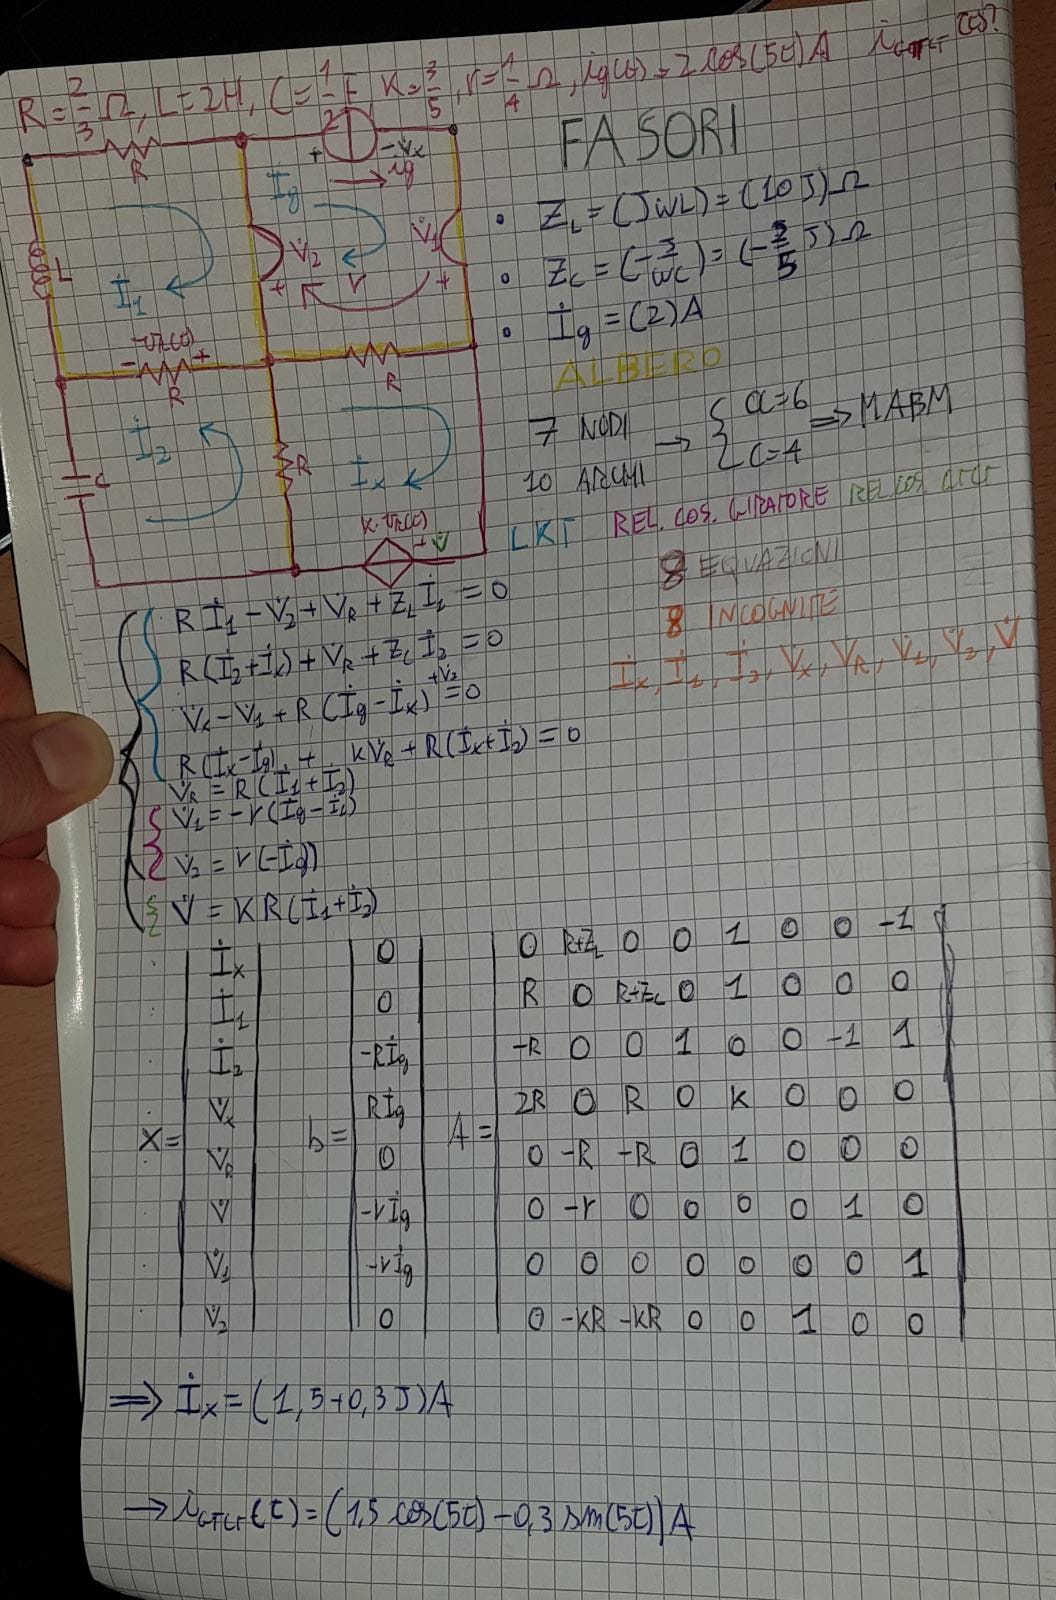 R = 2/3 Ω, L = 2H, C = 1/2 F K = 3/5, r = 1/4 Ω, ig(t) = 2 cos(5t) A iGTCT(t)?
FASORI
R
+ - V̇x
ig
L
İ1
İg
V̇2
+
r
V̇1
+
- VR(t) +
R
R
İ2
C
R
İx
K·VR(t)
+ V̇
• ZL = (JWL) = (10J)Ω
• ZC = (-J/WC) = (-2/5 J)Ω
• İg = (2)A
ALBERO
7 NODI
10 ARCHI
→ { a=6
c=4
⇒ MABM
LKT REL. COS. GIRATORE REL COS. GTCT
8 EQUAZIONI
8 INCOGNITE
İx, İ1, İ2, V̇x, V̇R, V̇1, V̇2, V̇
Rİ1 - V̇2 + V̇R + ZLİ1 = 0
R(İ2+İx) + V̇R + ZCİ2 = 0
V̇x - V̇1 + R(İg - İx) +V̇2 = 0
R(İx-İg) + KV̇R + R(İx+İ2) = 0
V̇R = R(İ1+İ2)
V̇1 = -r(İg-İ1)
V̇2 = r(-İg)
V̇ = KR(İ1+İ2)
X = | İx İ1 İ2 V̇x V̇R V̇ V̇1 V̇2 |
b = | 0 0 -Rİg Rİg 0 -rİg -rİg 0 |
A =
0 R+ZL 0 0 1 0 0 -1
R 0 R+ZC 0 1 0 0 0
-R 0 0 1 0 0 -1 1
2R 0 R 0 K 0 0 0
0 -R -R 0 1 0 0 0
0 -r 0 0 0 0 1 0
0 0 0 0 0 0 0 1
0 -KR -KR 0 0 1 0 0
⇒ İx = (1,5+0,3J)A
→ iGTCT(t) = (1,5 cos(5t) - 0,3 sm(5t)) A